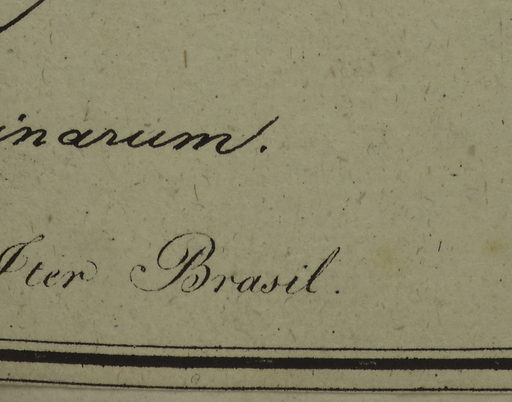 inarum.
Iter Brasil.